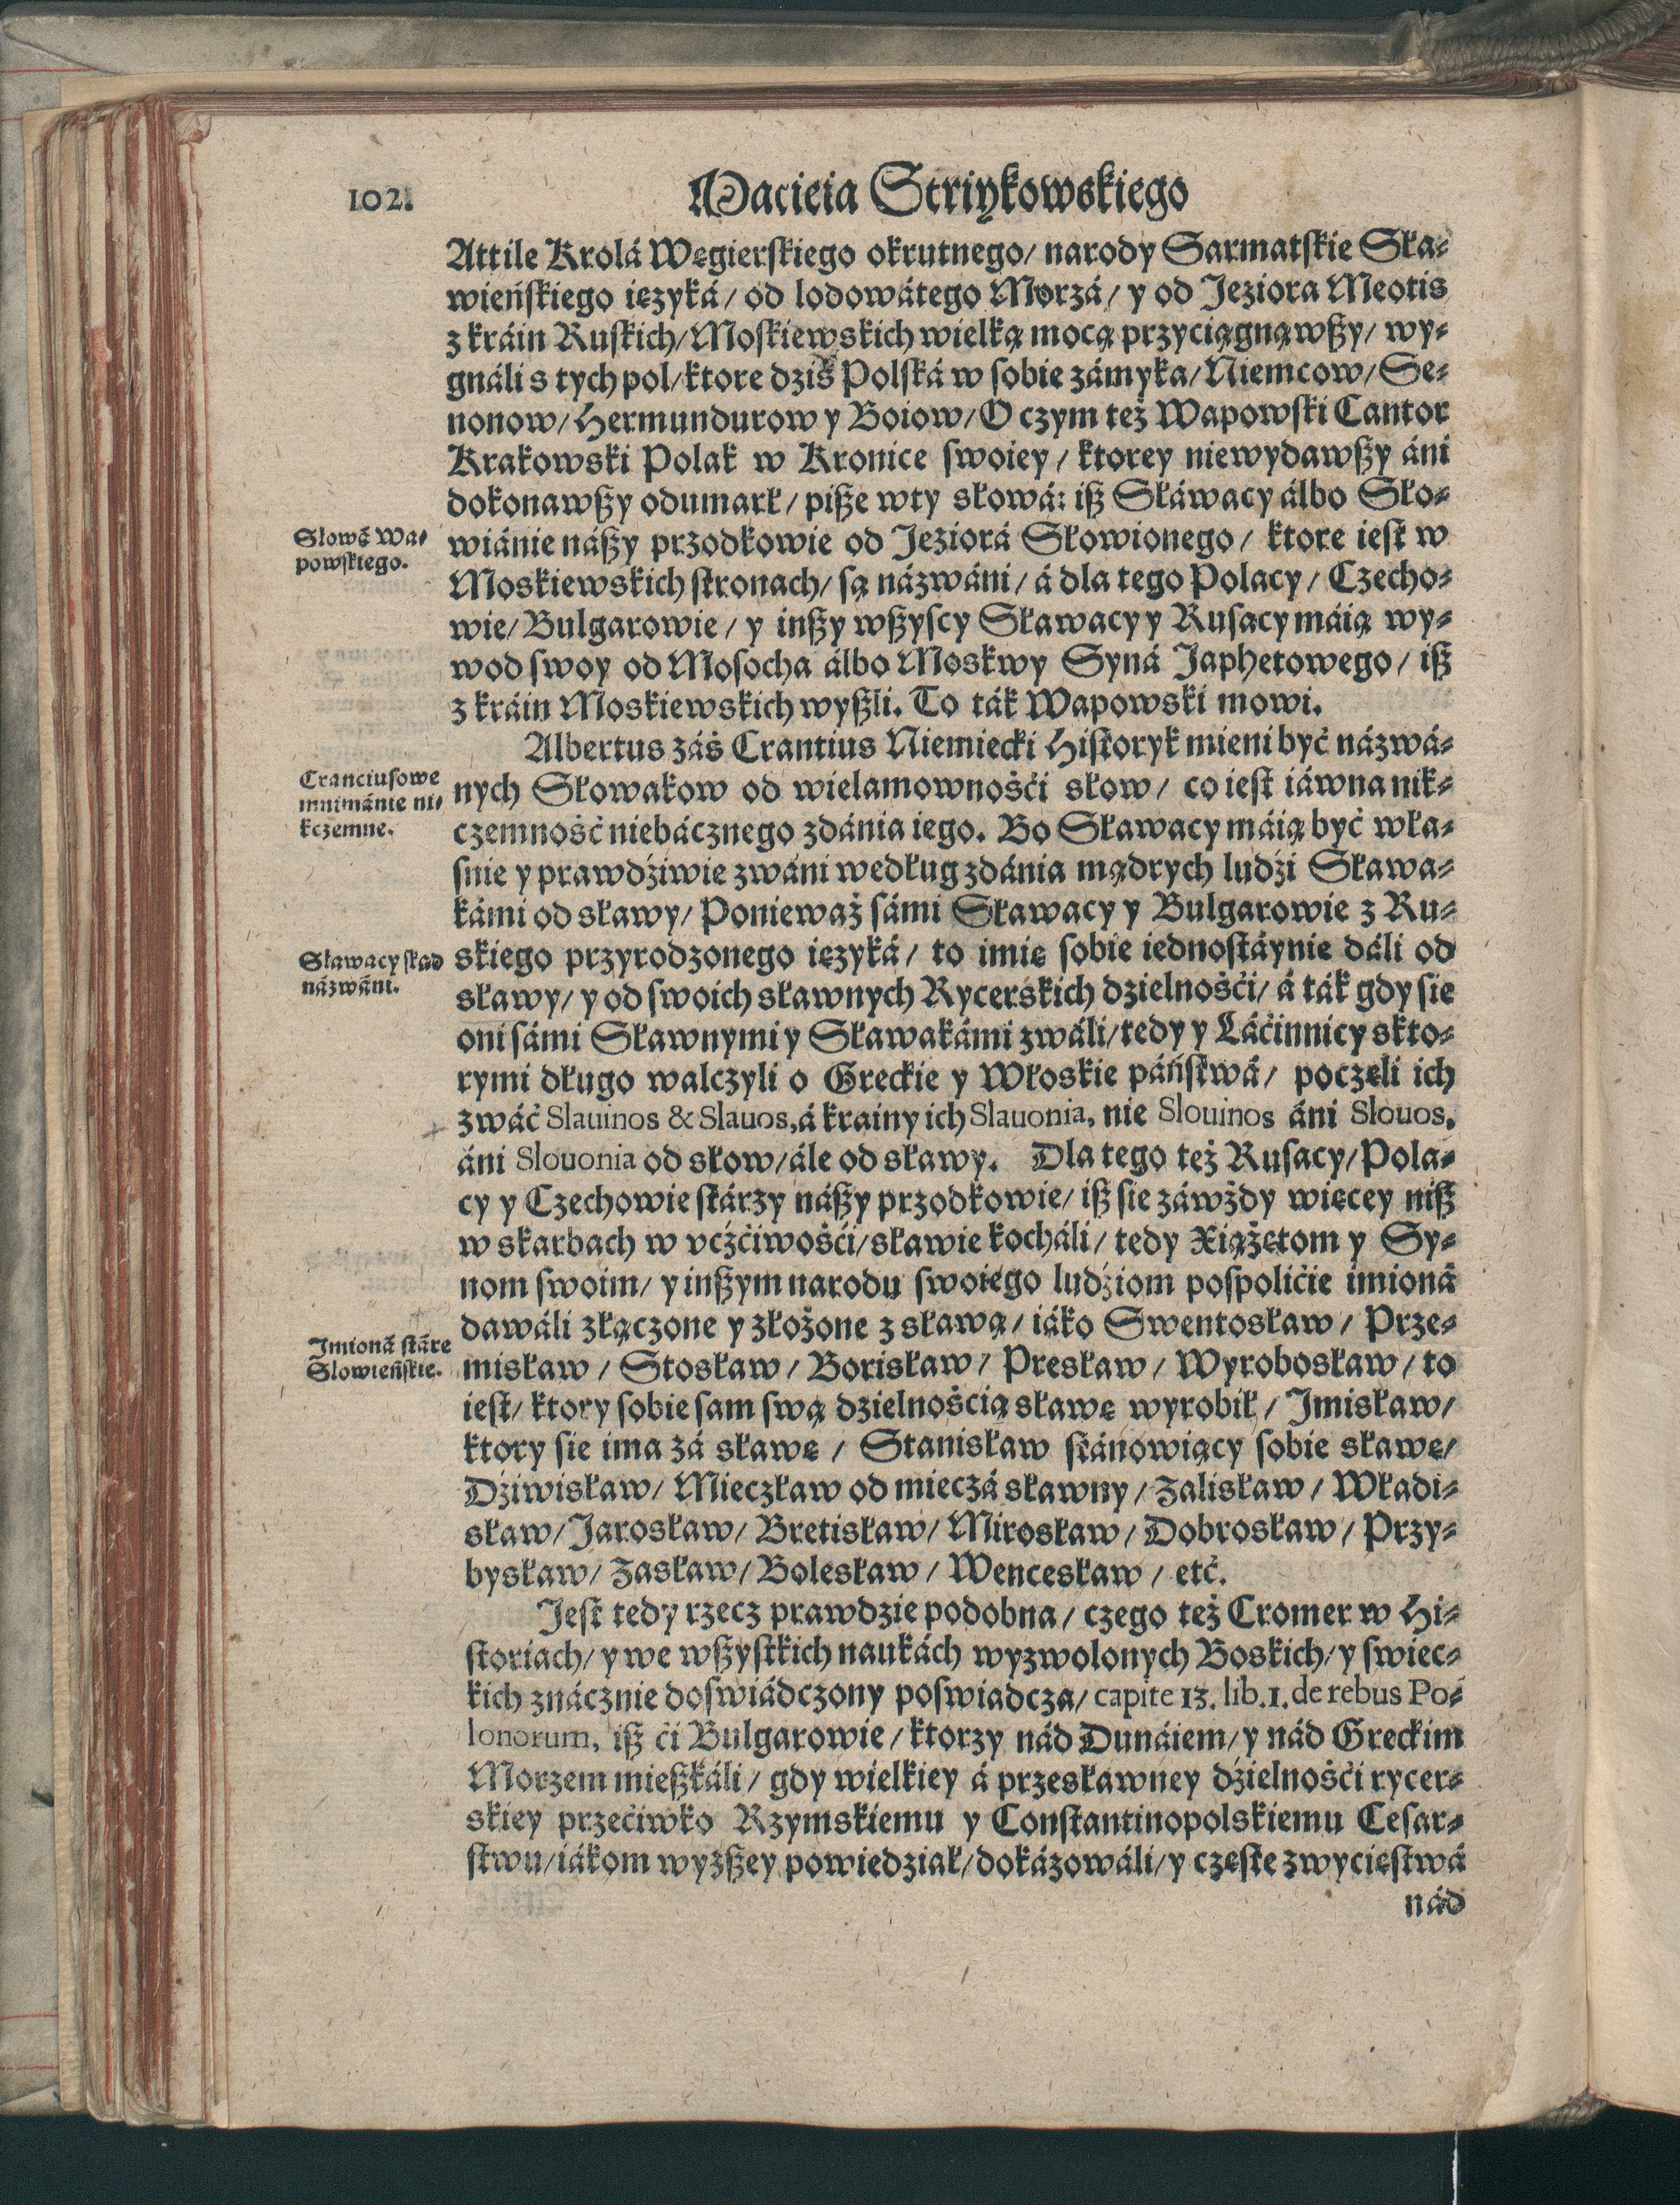 102.
Macieia Striykowskiego
Attile Krolá Węgierskiego okrutnego/ narody Sarmatskie Sła-
wieńskiego ięzyká/ od lodowátego Morzá/ y od Jeziora Meotis
z kráin Ruskich/ Moskiewskich wielką mocą przyciągnąwszy/ wy-
gnáli s tych pol/ ktore dziś Polská w sobie zámyka/ Niemcow/ Se-
nonow/ Hermundurow y Boiow/ O czym też Wapowski Cantor
Krakowski Polak w Kronice swoiey/ ktorey niewydawszy áni
dokonawszy odumarł/ pisze wty słowá: isz Słáwacy álbo Sło-
Słowá Wa-
powskiego.
wiánie nászy przodkowie od Jeziorá Słowionego/ ktore iest w
Moskiewskich stronach/ są názwáni/ á dla tego Polacy/ Czecho-
wie/ Bulgarowie/ y inszy wszyscy Sławacy y Rusacy máią wy-
wod swoy od Mosocha álbo Moskwy Syná Japhetowego/ isz
z kráin Moskiewskich wyszli. To ták Wapowski mowi.
Albertus záś Crantius Niemiecki Historyk mieni być názwá-
Cranciusowe
mnimánie ni-
kczemne.
nych Słowakow od wielamowności słow/ co iest iáwna nik-
czemność niebácznego zdánia iego. Bo Sławacy máią być wła-
snie y prawdźiwie zwáni według zdánia mądrych ludźi Sława-
kámi od sławy/ Ponieważ sámi Sławacy y Bulgarowie z Ru-
Sławacy skąd
názwáni.
skiego przyrodzonego ięzyká/ to imię sobie iednostáynie dáli od
sławy/ y od swoich sławnych Rycerskich dzielnośći/ á ták gdy sie
oni sámi Sławnymi y Sławakámi zwáli/ tedy y Láćinnicy skto-
rymi długo walczyli o Greckie y Włoskie páństwá/ poczęli ich
zwáć Slauinos & Slauos, á krainy ich Slauonia, nie Slouinos áni Slouos,
áni Slouonia od słow/ ále od sławy. Dla tego też Rusacy/ Pola-
cy y Czechowie stárzy nászy przodkowie/ isz sie záwżdy więcey nisz
w skarbach w vćżćiwośći/ sławie kocháli/ tedy Xiążętom y Sy-
nom swoim/ y inszym narodu swoiego ludźiom pospolićie imioná
dawáli złączone y złożone z sławą/ iáko Swentosław/ Prze-
Imioná stáre
Slowieńskie.
misław/ Stosław/ Borisław/ Presław/ Wyrobosław/ to
iest/ ktory sobie sam swą dzielnością sławę wyrobił/ Imisław/
ktory sie ima zá sławę/ Stanisław stánowiący sobie sławę/
Dźiwisław/ Mieczław od mieczá sławny/ Zalisław/ Władi-
sław/ Jarosław/ Bretisław/ Mirosław/ Dobrosław/ Przy-
bysław/ Zasław/ Bolesław/ Wencesław/ etć.
Jest tedy rzecz prawdzie podobna/ czego też Cromer w Hi-
storiach/ y we wszystkich naukách wyzwolonych Boskich/ y swiec-
kich znácznie doswiádczony poswiadcza/ capite 13. lib. 1. de rebus Po-
lonorum, isz ći Bulgarowie/ ktorzy nád Dunáiem/ y nád Greckim
Morzem mieszkáli/ gdy wielkiey á przesławney dźielnośći rycer-
skiey przećiwko Rzymskiemu y Constantinopolskiemu Cesar-
stwu/ iákom wyższey powiedział/ dokázowáli/ y częste zwycięstwá
nád